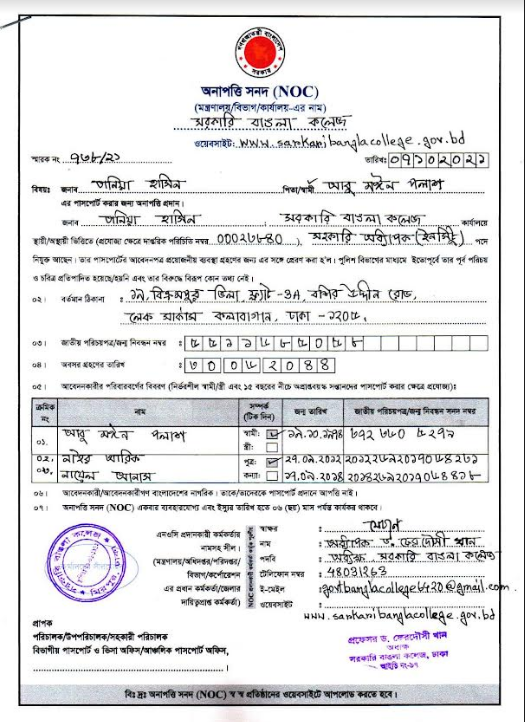 গণপ্রজাতন্ত্রী বাংলাদেশ সরকার
অনাপত্তি সনদ (NOC)
(মন্ত্রণালয়/বিভাগ/কার্যালয়-এর নাম)
সরকারি বাঙলা কলেজ
ওয়েবসাইট: www.sarkaribanglacollege.gov.bd
স্মারক নং ৭৩৮/২১ তারিখঃ
বিষয়ঃ জনাব তানিয়া হাসিন পিতা/স্বামী আবু মঈন পলাশ
এর পাসপোর্ট করার জন্য অনাপত্তি প্রদান।
জনাব তানিয়া হাসিন সরকারি বাঙলা কলেজ কার্যালয়ে
স্থায়ী/অস্থায়ী ভিত্তিতে (প্রযোজ্য ক্ষেত্রে দাপ্তরিক পরিচিতি নম্বর), সরকারি অধ্যাপক পদে
নিযুক্ত আছেন। তার পাসপোর্টের আবেদনপত্র প্রয়োজনীয় ব্যবস্থা গ্রহণের জন্য এর সঙ্গে প্রেরণ করা হ'ল। পুলিশ বিভাগের মাধ্যমে ইতোপূর্বে তার পূর্ব পরিচয়
ও চরিত্র প্রতিপাদিত হয়েছে/হয়নি এবং তার বিরুদ্ধে বিরূপ কোন তথ্য নেই।
০২। বর্তমান ঠিকানা : ১৯, বিক্রমপুর ভিলা, ফ্ল্যাট-9A, বশির উদ্দীন রোড,
লেক সার্কাস কলাবাগান, ঢাকা -১২০৫,
০৩। জাতীয় পরিচয়পত্র/জন্ম নিবন্ধন নম্বর :
০৪। অবসর গ্রহণের তারিখ :
০৫। আবেদনকারীর পরিবারবর্গের বিবরণ (নির্ভরশীল স্বামী/স্ত্রী এবং ১৫ বছরের নীচে অপ্রাপ্তবয়স্ক সন্তানদের পাসপোর্ট করার ক্ষেত্রে প্রযোজ্য)ঃ
ক্রমিক নং নাম সম্পর্ক (টিক দিন) জন্ম তারিখ জাতীয় পরিচয়পত্র/জন্ম নিবন্ধন সনদ নম্বর
০১. আবু মঈন পলাশ স্বামী:
স্ত্রী:
০২. পুত্র:
০৩. কন্যা:
০৬। আবেদনকারী/আবেদনকারীগণ বাংলাদেশের নাগরিক। তাকে/তাদেরকে পাসপোর্ট প্রদানে আপত্তি নাই।
০৭। অনাপত্তি সনদ (NOC) একবার ব্যবহারযোগ্য এবং ইস্যুর তারিখ হতে ০৬ (ছয়) মাস পর্যন্ত কার্যকর থাকবে।
এনওসি প্রদানকারী কর্মকর্তার স্বাক্ষর :
নামসহ সীল। নাম : অধ্যাপক ড. ফেরদৌসী খান
(মন্ত্রণালয়/অধিদপ্তর/পরিদপ্তর/ পদবি : অধ্যক্ষ, সরকারি বাঙলা কলেজ
বিভাগ/কর্পোরেশন টেলিফোন নম্বর : 48031263
এর প্রধান কর্মকর্তা/জেলার ই-মেইল : govtbanglacollege6420@gmail.com
দায়িত্বপ্রাপ্ত কর্মকর্তা) ওয়েবসাইট : www.sarkaribanglacollege.gov.bd
প্রাপক
পরিচালক/উপপরিচালক/সহকারী পরিচালক
বিভাগীয় পাসপোর্ট ও ভিসা অফিস/আঞ্চলিক পাসপোর্ট অফিস,
প্রফেসর ড. ফেরদৌসী খান
অধ্যক্ষ
সরকারি বাঙলা কলেজ, ঢাকা
বিঃ দ্রঃ অনাপত্তি সনদ (NOC) স্ব স্ব প্রতিষ্ঠানের ওয়েবসাইটে আপলোড করতে হবে।